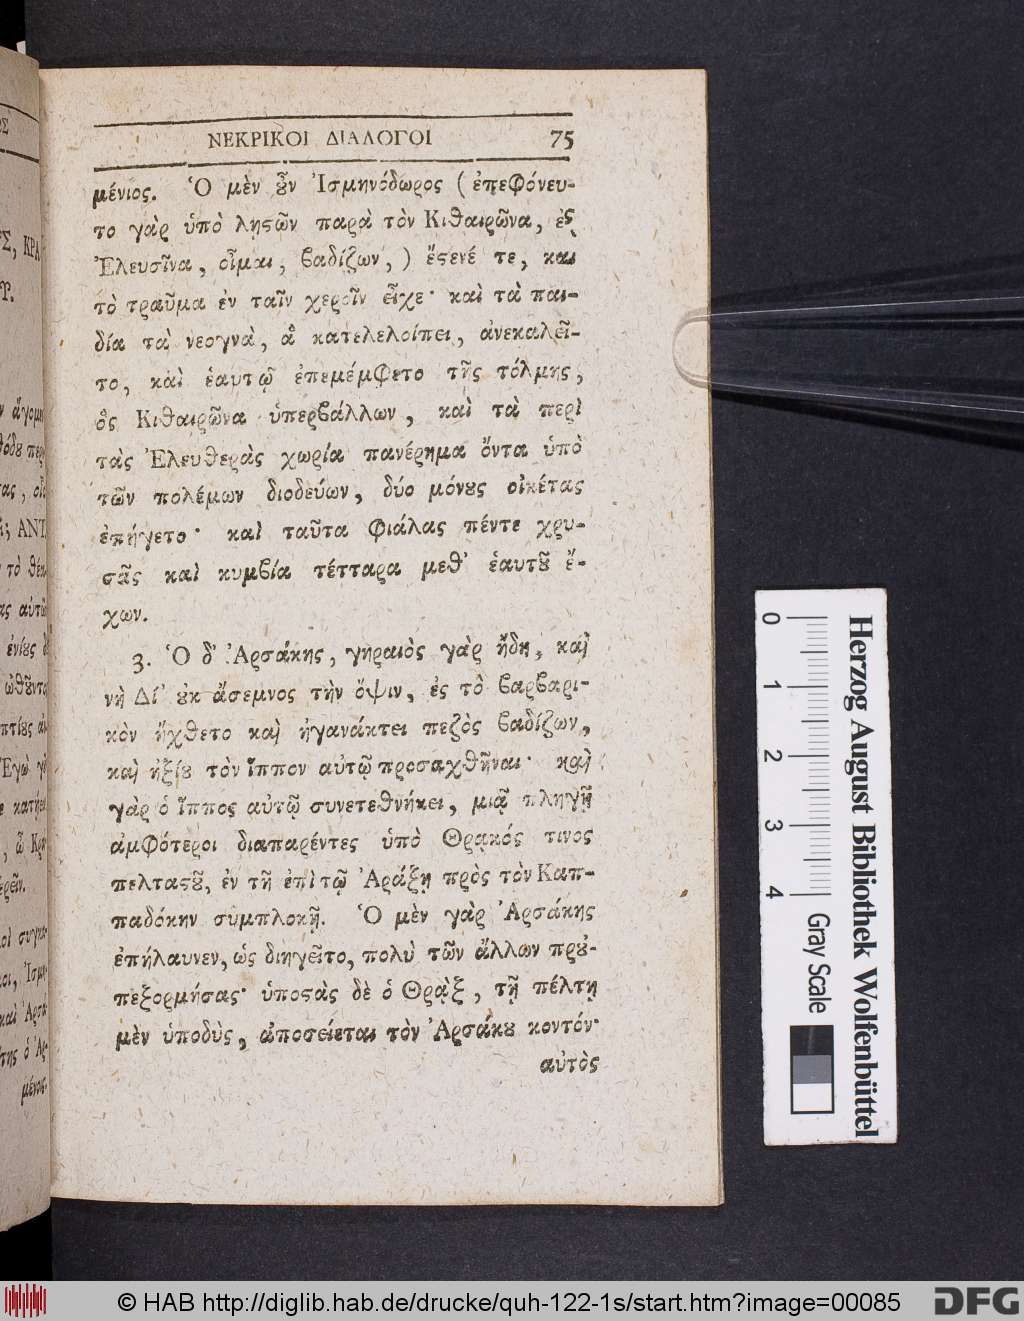 ΝΕΚΡΙΚΟΙ ΔΙΑΛΟΓΟΙ 75
μένιος. Ὁ μὲν ȣ̃ν Ἰσμηνόδωρος (ἐπεφόνευ-
το γὰρ ὑπὸ λῃϛῶν παρὰ τὸν Κιθαιρῶνα, ἐς
Ἐλευσῖνα, οἶμαι, βαδίζων,) ἔϛενέ τε, καὶ
τὸ τραῦμα ἐν ταῖν χεροῖν εἶχε· καὶ τὰ παι-
δία τὰ νεογνὰ, ἃ κατελελοίπει, ἀνεκαλεῖ-
το, καὶ ἑαυτῷ ἐπεμέμφετο τῆς τόλμης,
ὃς Κιθαιρῶνα ὑπερβάλλων, καὶ τὰ περὶ
τὰς Ἐλευθερὰς χωρία πανέρημα ὄντα ὑπὸ
τῶν πολέμων διοδεύων, δύο μόνȣς οἰκέτας
ἐπήγετο· καὶ ταῦτα φιάλας πέντε χρυ-
σᾶς καὶ κυμβία τέτταρα μεθ' ἑαυτȣ͂ ἔ-
χων.
3. Ὁ δ' Ἀρσάκης, γηραιὸς γὰρ ἤδη, καὶ
νὴ Δί' ȣκ ἄσεμνος τὴν ὄψιν, ἐς τὸ βαρβαρι-
κὸν ἤχθετο καὶ ἠγανάκτει πεζὸς βαδίζων,
καὶ ἠξίȣ τὸν ἵππον αὐτῷ προσαχθῆναι· καὶ
γὰρ ὁ ἵππος αὐτῷ συνετεθνήκει, μιᾷ πληγῇ
ἀμφότεροι διαπαρέντες ὑπὸ Θρᾳκός τινος
πελταϛȣ͂, ἐν τῇ ἐπὶ τῷ Ἀράξῃ πρὸς τὸν Καπ-
παδόκην συμπλοκῇ. Ὁ μὲν γὰρ Ἀρσάκης
ἐπήλαυνεν, ὡς διηγεῖτο, πολὺ τῶν ἄλλων πρȣ̓-
πεξορμήσας· ὑποϛὰς δὲ ὁ Θρᾲξ, τῇ πέλτῃ
μὲν ὑποδὺς, ἀποσείεται τὸν Ἀρσάκȣ κοντόν·
αὐτὸς
0 1 2 3 4
Gray Scale
Herzog August Bibliothek Wolfenbüttel
© HAB http://diglib.hab.de/drucke/quh-122-1s/start.htm?image=00085
DFG